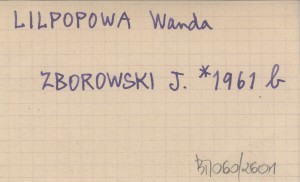 LILPOPOWA Wanda
ZBOROWSKI J. *1961 b
B/060/2601